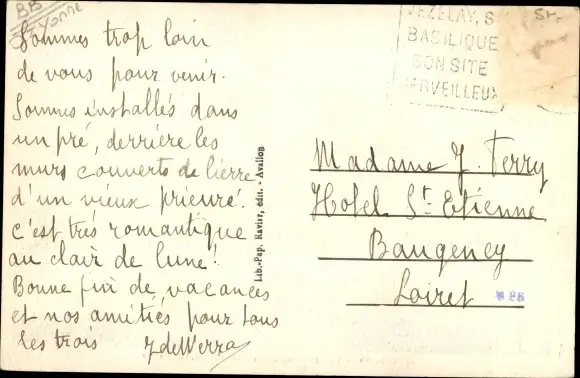 BB
Yonne
Sommes trop loin
de vous pour venir.
Sommes installés dans
un pré, derrière les
murs couverts de lierre
d'un vieux prieuré.
c'est très romantique
au clair de lune!
Bonne fin de vacances
et nos amitiés pour tous
les trois JdeWerra
Lib.-Pap. Xavier, edit. - Avallon
VEZELAY, S
BASILIQUE
SON SITE
MERVEILLEUX
Madame J. Ferry
Hotel St Etienne
Baugency
Loiret